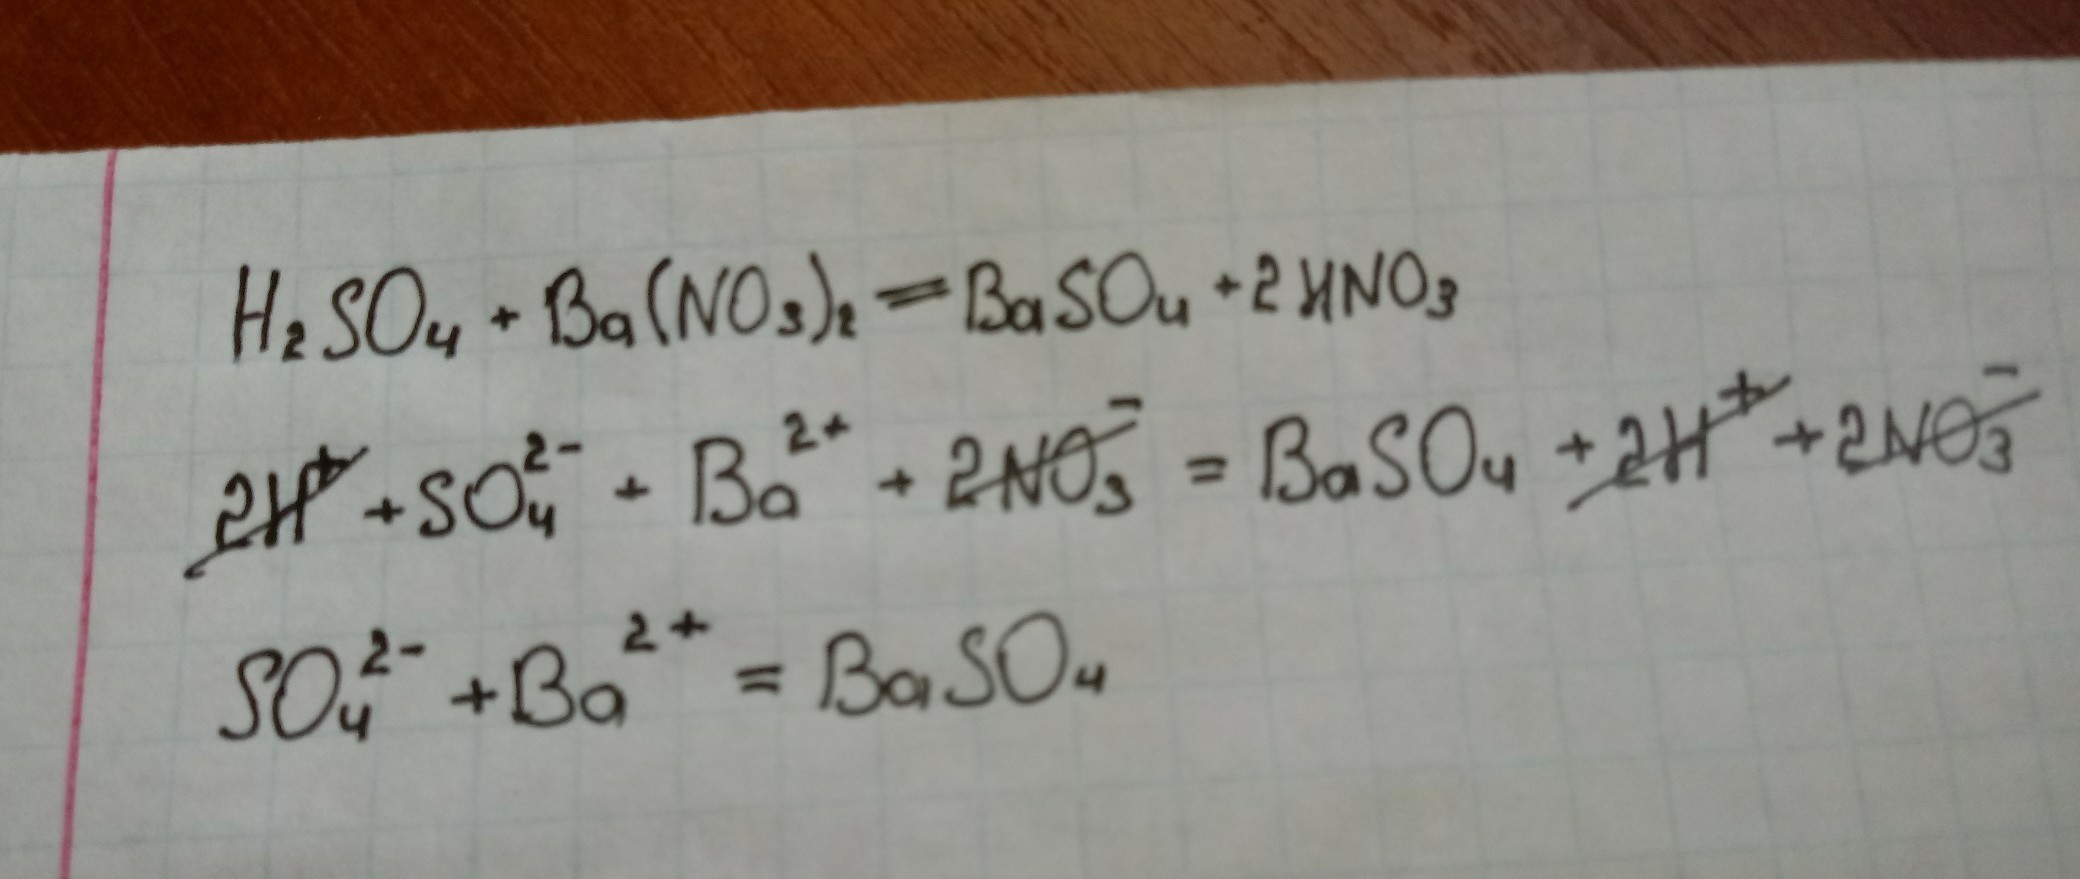 H₂SO₄ + Ba(NO₃)₂ = BaSO₄ + 2HNO₃
2H⁺ + SO₄²⁻ + Ba²⁺ + 2NO₃⁻ = BaSO₄ + 2H⁺ + 2NO₃⁻
SO₄²⁻ + Ba²⁺ = BaSO₄